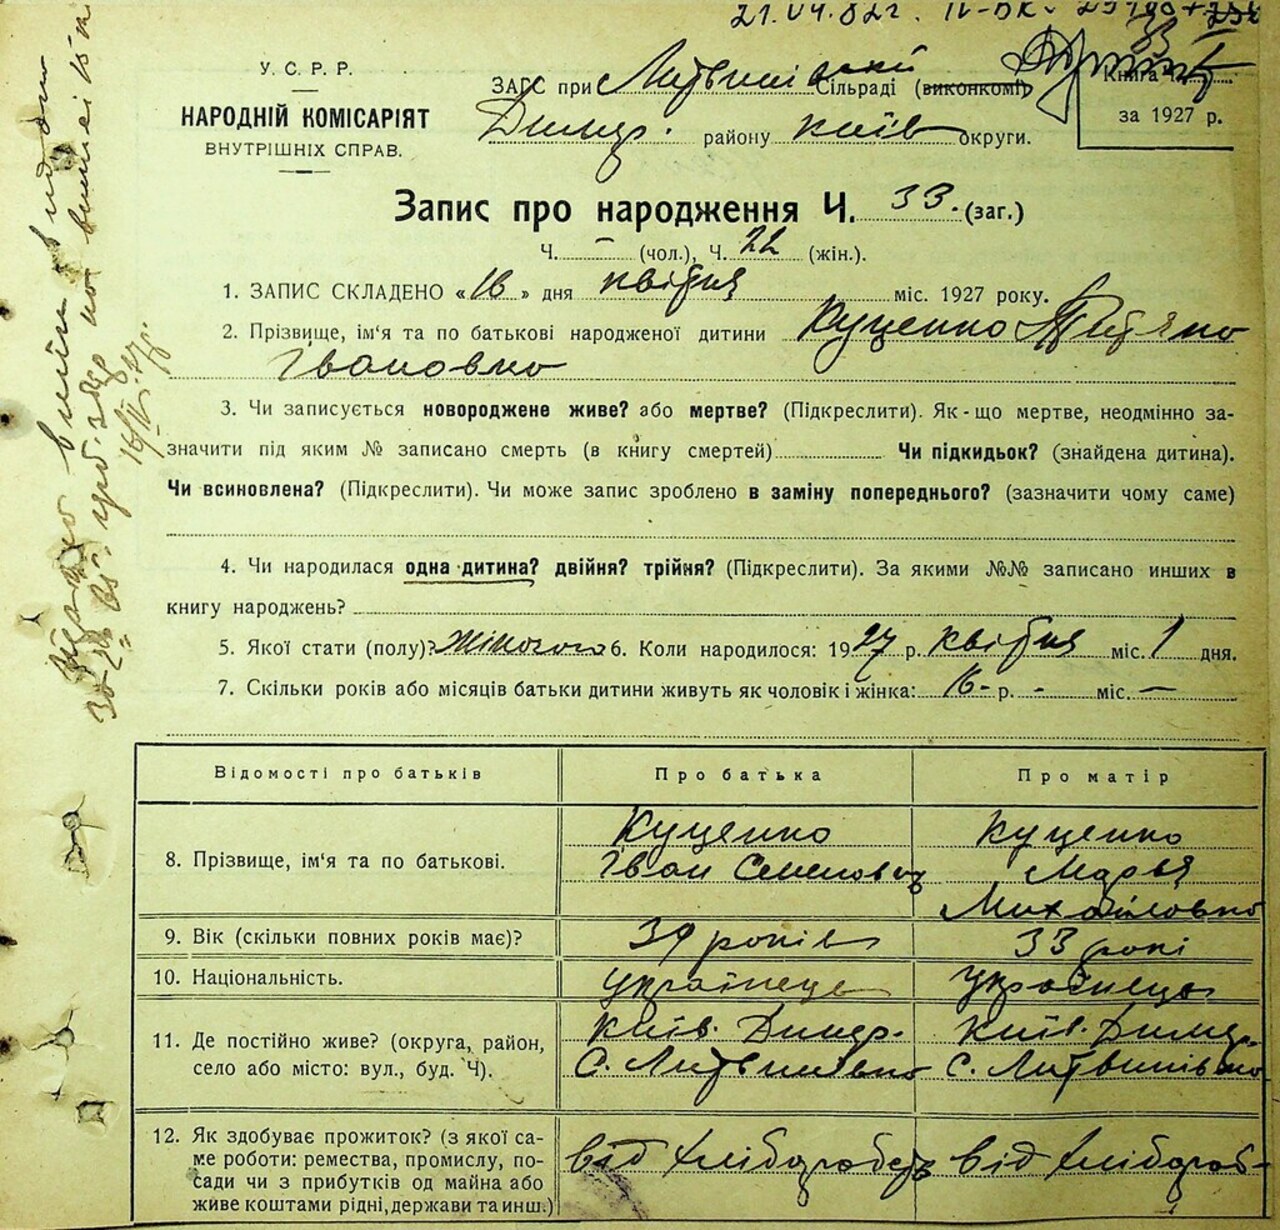 21.04.82г.
У. С. Р. Р.
НАРОДНІЙ КОМІСАРІЯТ
ВНУТРІШНІХ СПРАВ.
ЗАГС при Литвинівській Сільраді (виконкомі)
Димер. району Київ округи.
Книга
за 1927 р.
Запис про народження Ч. 33. (заг.)
Ч. – (чол.), Ч. 22 (жін.).
1. ЗАПИС СКЛАДЕНО «16» дня квітня міс. 1927 року.
2. Прізвище, ім'я та по батькові народженої дитини Куценко Тит'яна
Івановна
3. Чи записується новороджене живе? або мертве? (Підкреслити). Як-що мертве, неодмінно за-
значити під яким № записано смерть (в книгу смертей) Чи підкидьок? (знайдена дитина).
Чи всиновлена? (Підкреслити). Чи може запис зроблено в заміну попереднього? (зазначити чому саме)
4. Чи народилася одна дитина? двійня? трійня? (Підкреслити). За якими №№ записано инших в
книгу народжень?
5. Якої стати (полу)? Жіночого 6. Коли народилося: 1927 р. квітня міс. 1 дня.
7. Скільки років або місяців батьки дитини живуть як чоловік і жінка: 16- р. - міс. —
Відомості про батьків
Про батька
Про матір
8. Прізвище, ім'я та по батькові.
Куценко
Іван Семенович
Куценко
Марья
Михайловна
9. Вік (скільки повних років має)?
39 років
33 рокі
10. Національність.
українець
українець
11. Де постійно живе? (округа, район,
село або місто: вул., буд. Ч).
Київ. Димер.
С. Литвинівка
Київ. Димер.
С. Литвинівка
12. Як здобуває прожиток? (з якої са-
ме роботи: ремества, промислу, по-
сади чи з прибутків од майна або
живе коштами рідні, держави та инш.)
від хліборобств
від хлібороб-